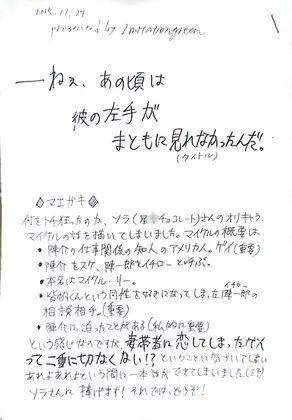 2015.11.27
presented by Imitationgreen
―ねぇ、あの頃は
彼の左手が
まともに見れなかったんだ。
(タイトル)
◈マエガキ◈
何をトチ狂ったのか、ソラ(星 チョコレート)さんのオリキャラ、
マイケルの話を描いてしまいました。マイケルの概要は
• 陳介の仕事関係の知人のアメリカ人。ゲイ(重要)
• 陳介をスケ、陳一郎をイチローと呼ぶ。
• 本名はマイケル・リー。
• 皆 くんという同性を好きになってしまった陳一郎の
イチロー
相談相手。(重要)
• 陳介に迫ったことがある(私的に重要)
という感じなのですが、妻帯者に恋してしまったゲイ
って二重に切なくない!?ということに気づいてしまい
あれよあれよという間に一本話ができてしまいました
ソラさんに捧げます!それでは、どうぞ!